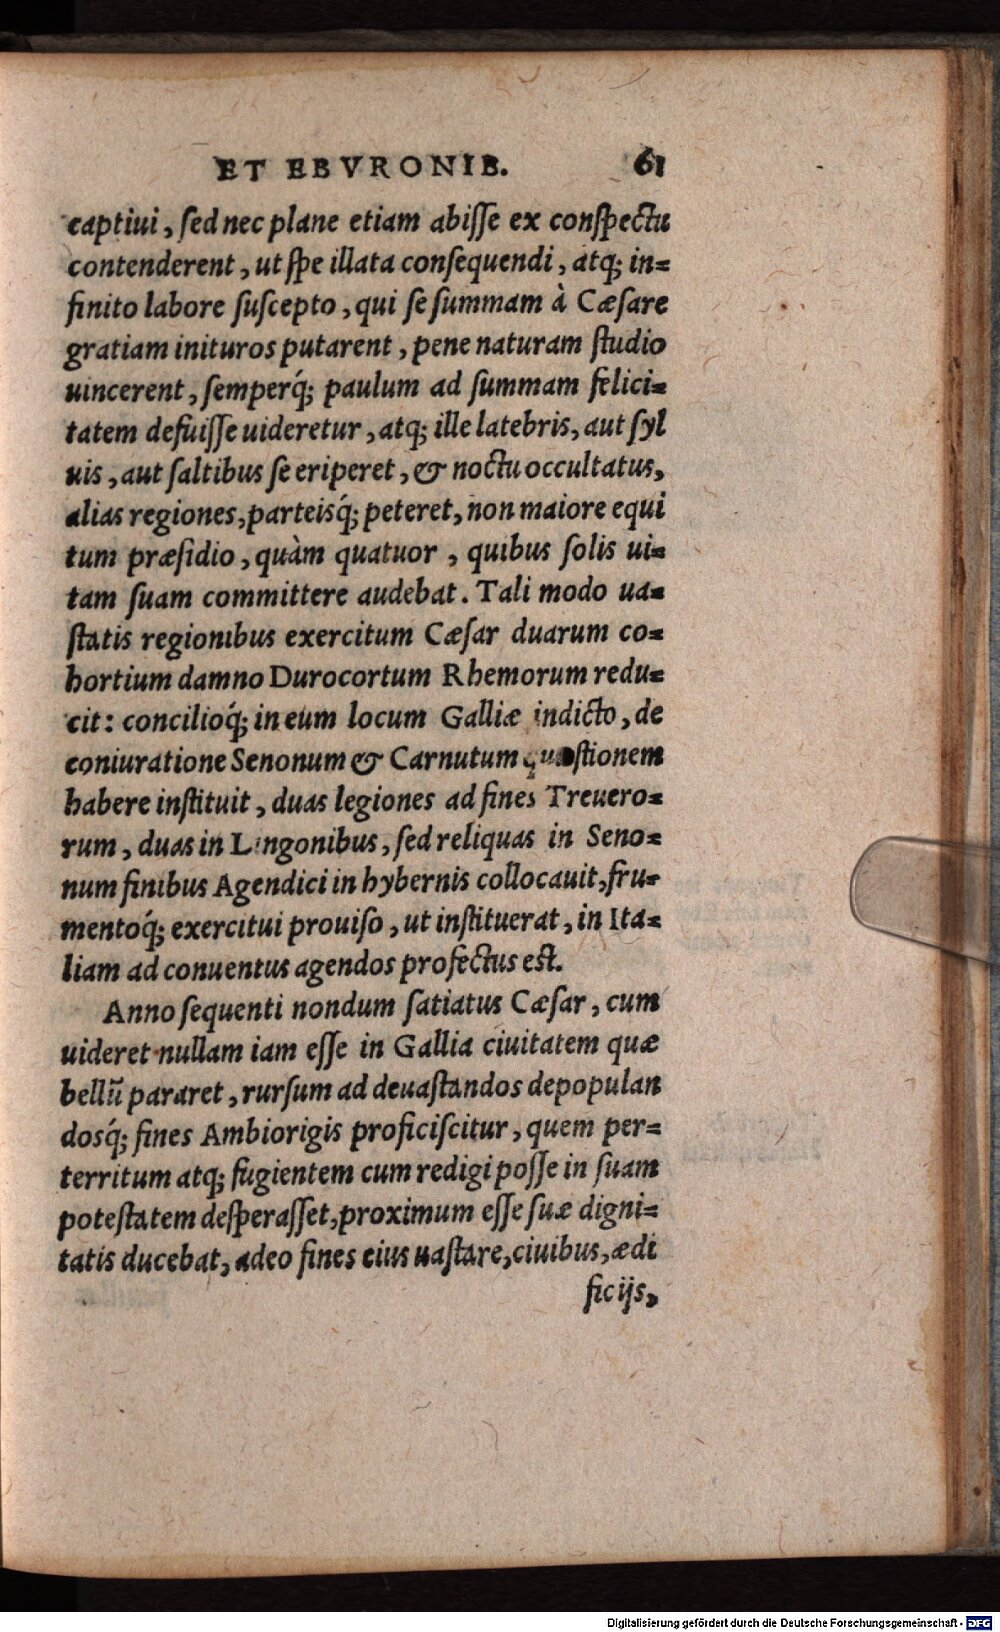 ET EBVRONIB. 61
captiui, sed nec plane etiam abisse ex conspectu
contenderent, ut spe illata consequendi, atq; in=
finito labore suscepto, qui se summam à Cæsare
gratiam inituros putarent, pene naturam studio
uincerent, semperq́; paulum ad summam felici=
tatem defuisse uideretur, atq; ille latebris, aut syl
uis, aut saltibus se eriperet, & noctu occultatus,
alias regiones, parteisq́; peteret, non maiore equi
tum præsidio, quàm quatuor, quibus solis ui=
tam suam committere audebat. Tali modo ua=
statis regionibus exercitum Cæsar duarum co=
hortium damno Durocortum Rhemorum redu=
cit: concilioq́; in eum locum Galliæ indicto, de
coniuratione Senonum & Carnutum quæstionem
habere instituit, duas legiones ad fines Treuero=
rum, duas in Lingonibus, sed reliquas in Seno=
num finibus Agendici in hybernis collocauit, fru=
mentoq́; exercitui prouiso, ut instituerat, in Ita=
liam ad conuentus agendos profectus est.
Anno sequenti nondum satiatus Cæsar, cum
uideret nullam iam esse in Gallia ciuitatem quæ
bellū pararet, rursum ad deuastandos depopulan
dosq́; fines Ambiorigis proficiscitur, quem per=
territum atq; fugientem cum redigi posse in suam
potestatem desperasset, proximum esse suæ digni=
tatis ducebat, adeo fines eius uastare, ciuibus, ædi
ficijs,
Digitalisierung gefördert durch die Deutsche Forschungsgemeinschaft - DFG